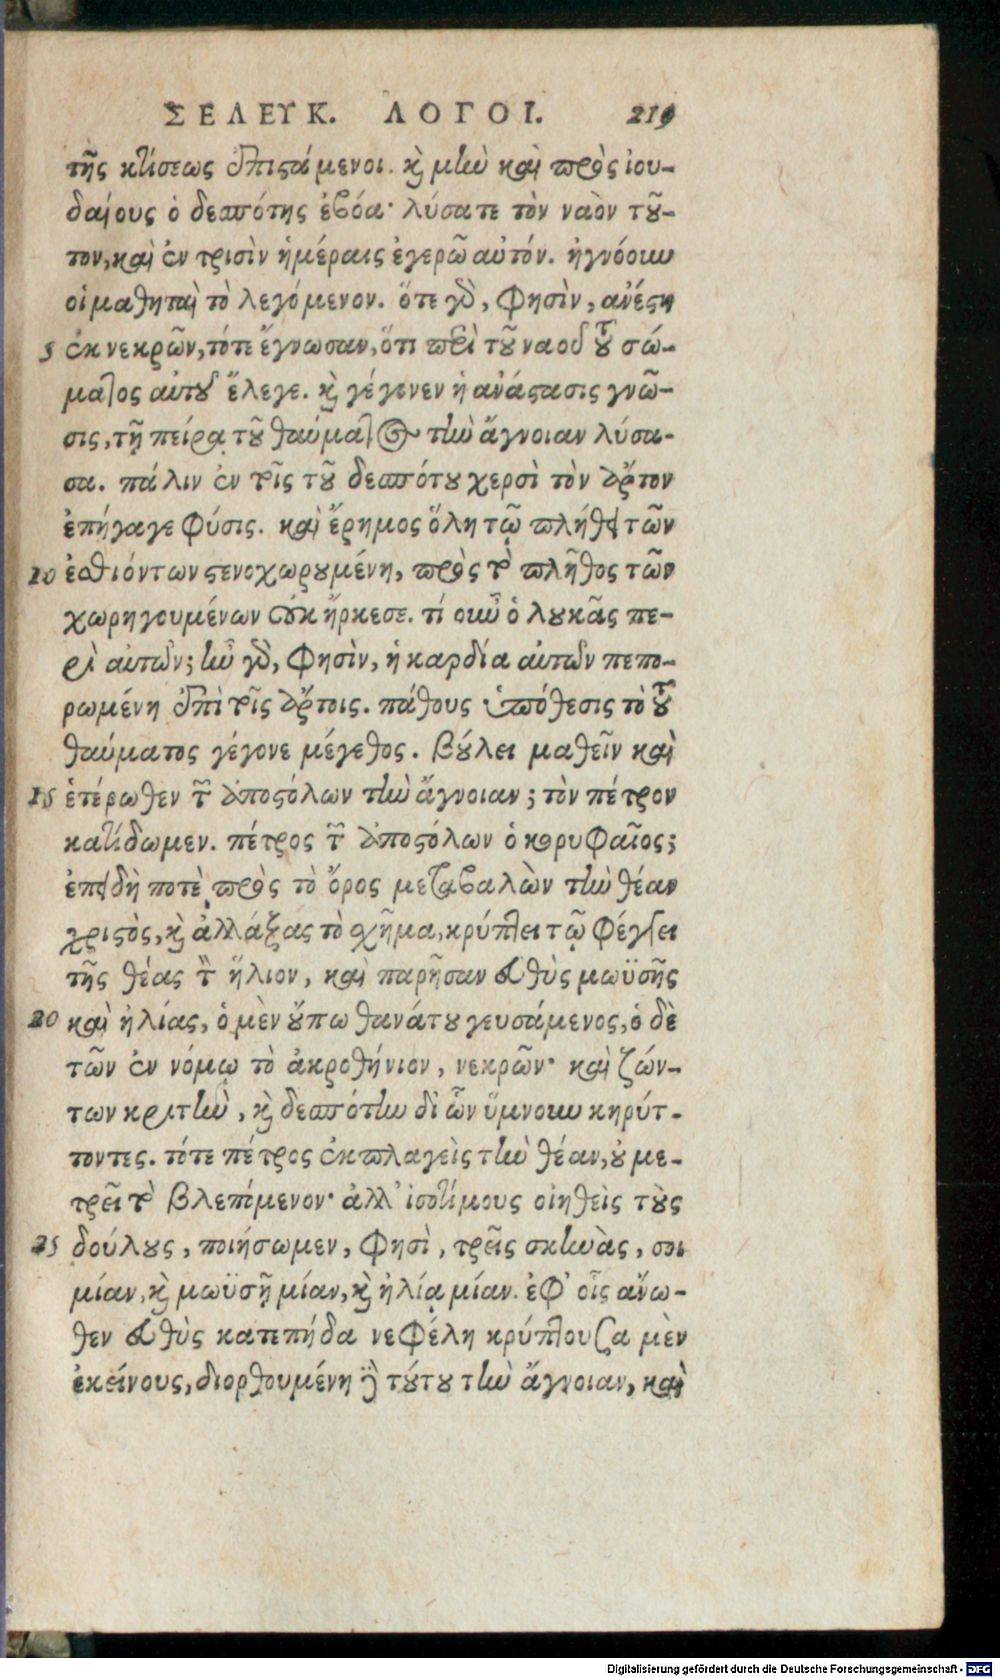 ΣΕΛΕΥΚ. ΛΟΓΟΙ. 219
τῆς κτίσεως ἐπιστάμενοι. καὶ μὴν καὶ πρὸς ἰου-
δαίους ὁ δεσπότης ἐβόα· λύσατε τὸν ναὸν τοῦ-
τον, καὶ ἐν τρισὶν ἡμέραις ἐγερῶ αὐτόν. ἠγνόουν
οἱ μαθηταὶ τὸ λεγόμενον. ὅτε γὰρ, φησὶν, ἀνέστη
5 ἐκ νεκρῶν, τότε ἔγνωσαν, ὅτι περὶ τοῦ ναοῦ τοῦ σώ-
ματος αὐτοῦ ἔλεγε. καὶ γέγονεν ἡ ἀνάστασις γνῶ-
σις, τῇ πείρᾳ τοῦ θαύματος τὴν ἄγνοιαν λύσα-
σα. πάλιν ἐν ταῖς τοῦ δεσπότου χερσὶ τὸν ἄρτον
ἐπήγαγε φύσις. καὶ ἔρημος ὅλη τῷ πλήθει τῶν
10 ἐσθιόντων στενοχωρουμένη, πρὸς τὸ πλῆθος τῶν
χωρηγουμένων οὐκ ἤρκεσε. τί οὖν ὁ λουκᾶς πε-
ρὶ αὐτῶν; ἦν γὰρ, φησὶν, ἡ καρδία αὐτῶν πεπο-
ρωμένη ἐπὶ τοῖς ἄρτοις. πάθους ὑπόθεσις τὸ τοῦ
θαύματος γέγονε μέγεθος. βούλει μαθεῖν καὶ
15 ἑτέρωθεν τῶν ἀποστόλων τὴν ἄγνοιαν; τὸν πέτρον
κατίδωμεν. πέτρος τῶν ἀποστόλων ὁ κορυφαῖος;
ἐπειδή ποτὲ πρὸς τὸ ὄρος μεταβαλὼν τὴν θέαν
χριστὸς, καὶ ἀλλάξας τὸ σχῆμα, κρύπτει τῷ φέγγει
τῆς θέας τὸν ἥλιον, καὶ παρῆσαν εὐθὺς μωϋσῆς
20 καὶ ἠλίας, ὁ μὲν οὔπω θανάτου γευσάμενος, ὁ δὲ
τῶν ἐν νόμῳ τὸ ἀκροθήνιον, νεκρῶν· καὶ ζών-
των κριτὴν, καὶ δεσπότην δι ὧν ὕμνουν κηρύτ-
τοντες. τότε πέτρος ἐκπλαγεὶς τὴν θέαν, οὐ με-
τρεῖ τὸ βλεπόμενον· ἀλλ' ἰσοτίμους οἰηθεὶς τοὺς
25 δούλους, ποιήσωμεν, φησὶ, τρεῖς σκηνὰς, σοι
μίαν, καὶ μωϋσῇ μίαν, καὶ ἠλίᾳ μίαν. ἐφ' οἷς ἄνω-
θεν εὐθὺς κατεπήδα νεφέλη κρύπτουσα μὲν
ἐκείνους, διορθουμένη δὲ τούτου τὴν ἄγνοιαν, καὶ
Digitalisierung gefördert durch die Deutsche Forschungsgemeinschaft - DFG